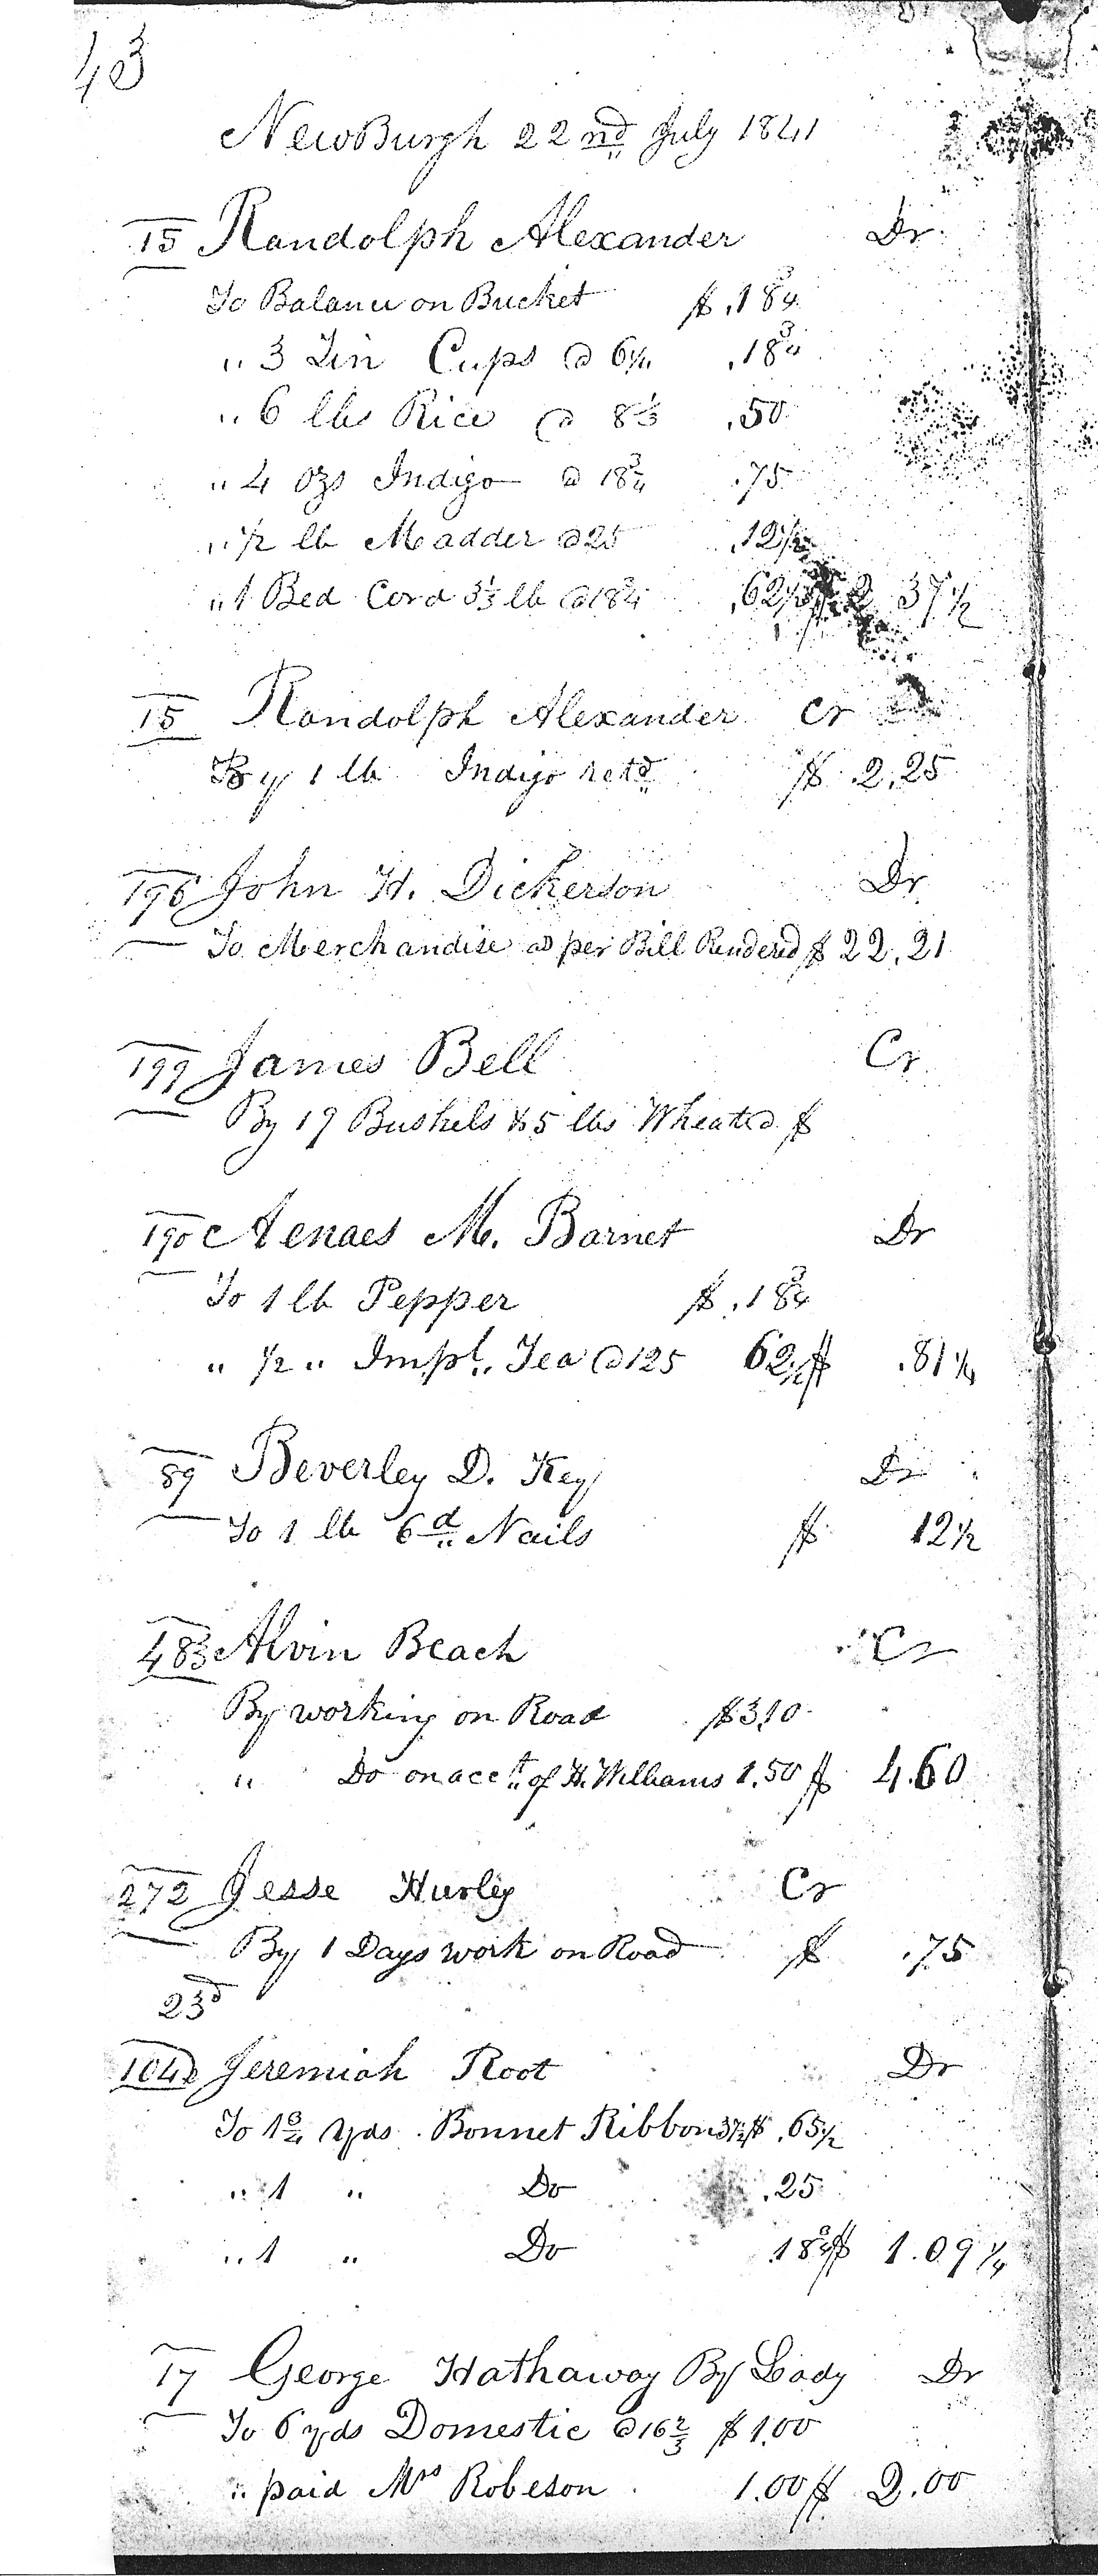 43
NewBurgh 22nd July 1841
15 Randolph Alexander Dr
To Balance on Bucket $ .18¾
" 3 Tin Cups @ 6¼ .18¾
" 6 lbs Rice @ 8⅓ .50
" 4 ozs Indigo @ 18¾ .75
" ½ lb Madder @ 25 .12½
" 1 Bed Cord 3⅓ lb @ 18¾ .62½ $ 2 37½
15 Randolph Alexander Cr
By 1 lb Indigo retd $ 2.25
196 John H. Dickerson Dr
To Merchandise as per Bill Rendered $ 22.21
199 James Bell Cr
By 19 Bushels & 5 lbs Wheat @ $
190 Aenaes M. Barnet Dr
To 1 lb Pepper $ .18¾
" ½ " Impl. Tea @ 125 62½ $ .81¼
89 Beverley D. Key Dr
To 1 lb 6d Nails $ 12½
483 Alvin Beach Cr
By working on Road $3.10
" Do on acct of H. Williams 1.50 $ 4.60
272 Jesse Hurley Cr
By 1 Days work on Road $ .75
23d
104 Jeremiah Root Dr
To 1¾ yds. Bonnet Ribbon 37½ $ .65½
" 1 " Do .25
" 1 " Do .18¾ $ 1.09¼
17 George Hathaway By Lady Dr
To 6 yds Domestic @ 16⅔ $ 1.00
" paid Mrs Robeson 1.00 $ 2.00